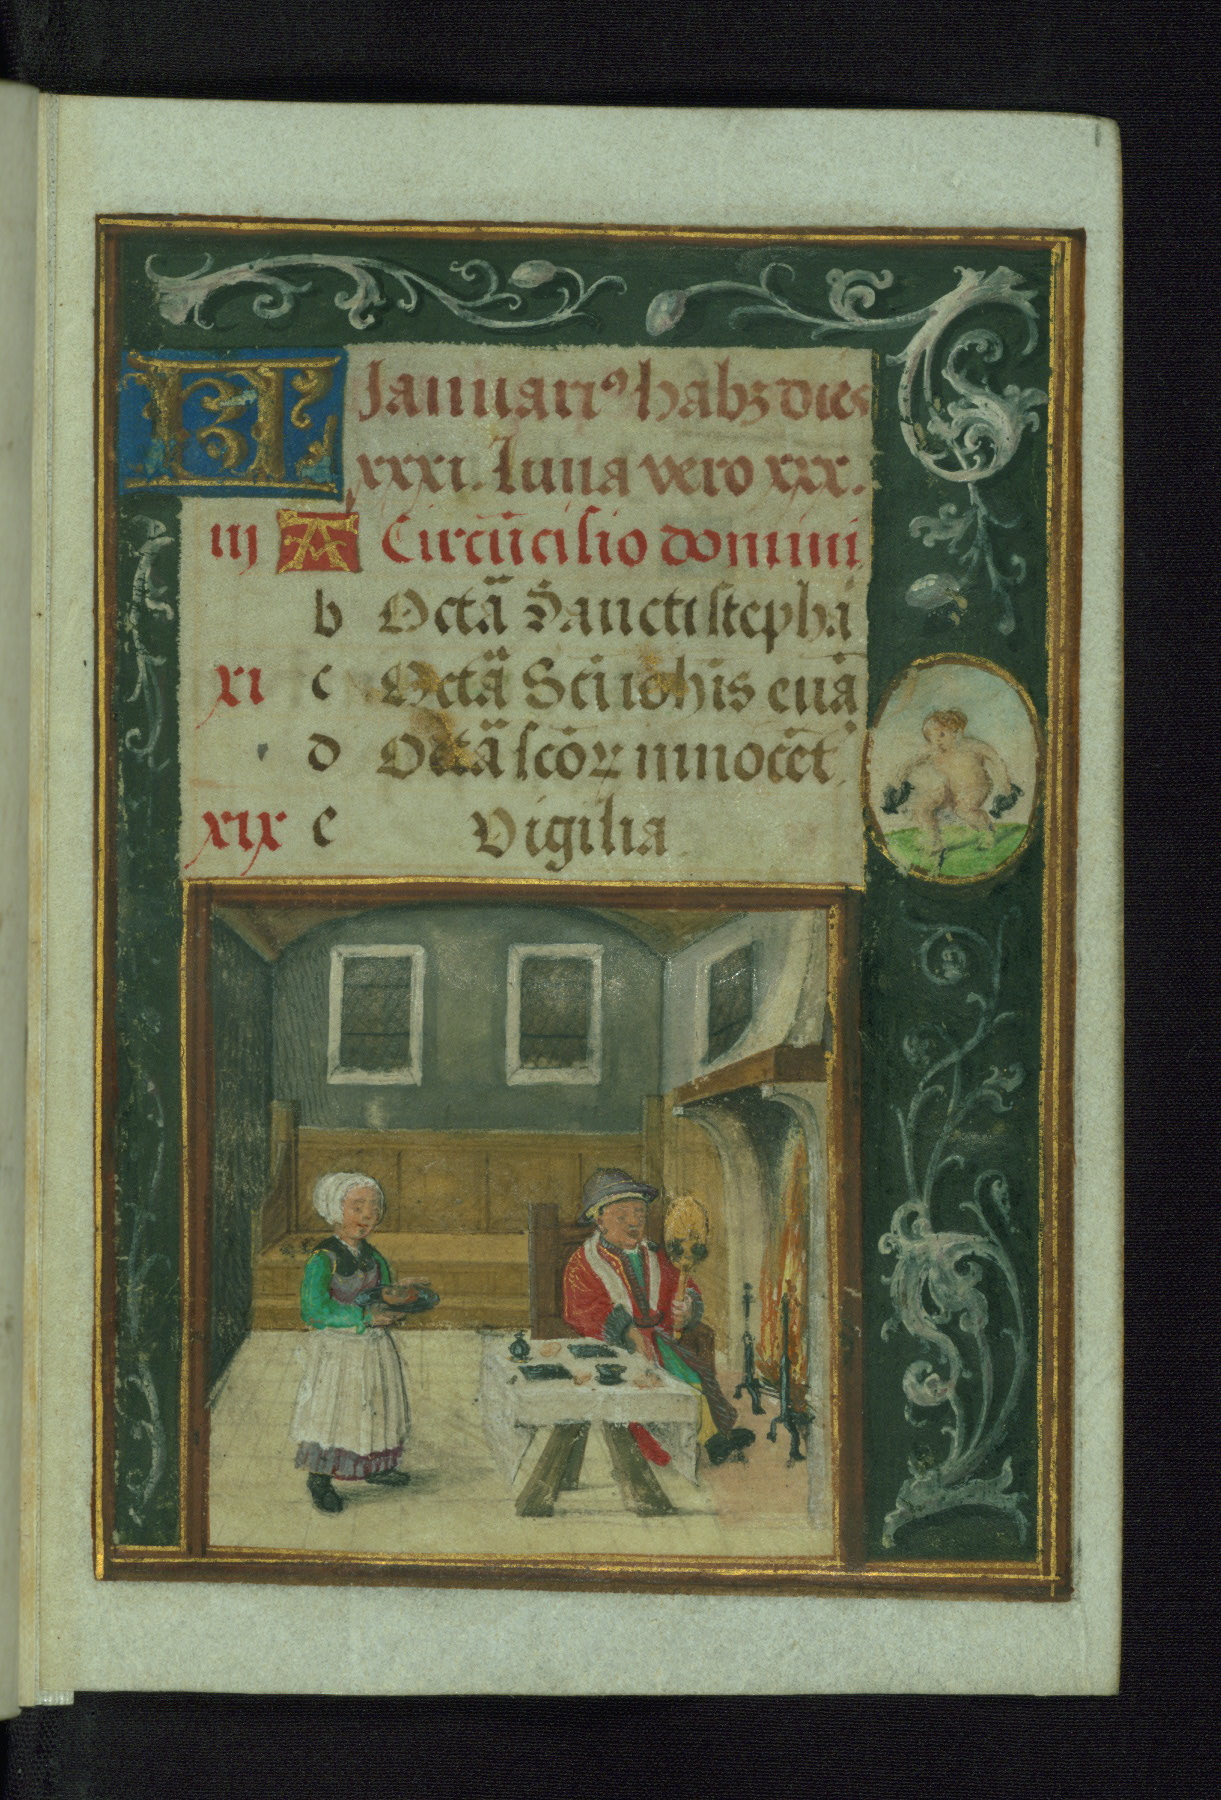 KL Januari⁹ habꝫ dies
xxxi. Luna vero xxx.
iij A Circūcisio domini
b Octā Sancti stephā
xi c Octā Scī iohīs euā
d Octā scōꝝ innocēt
xix e Vigilia